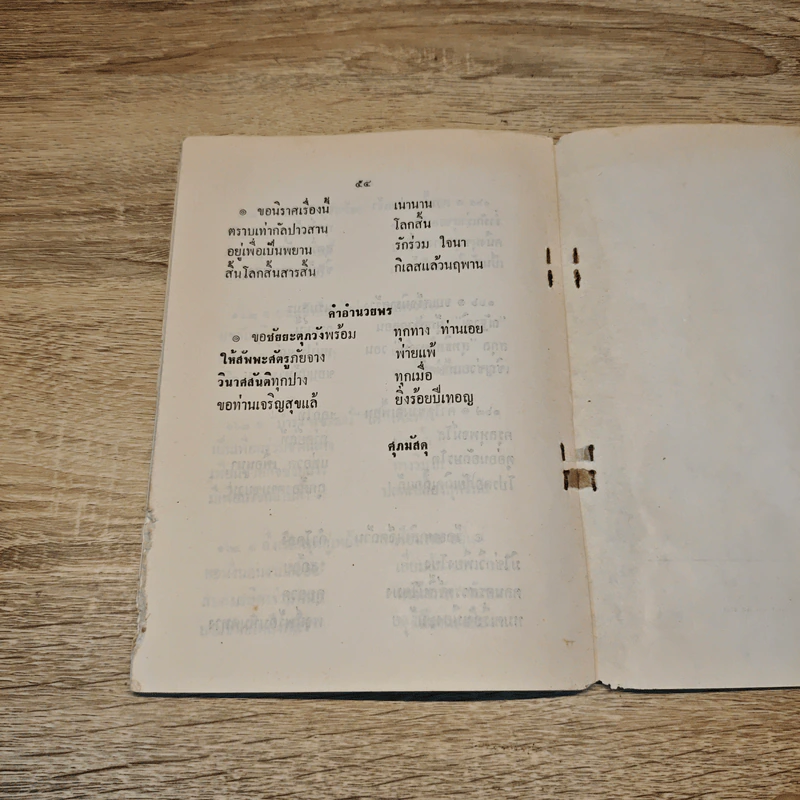 ๕๔
๏ ขอนิราศเรื่องนี้ เนานาน
ตราบเท่ากัลปาวสาน โลกสิ้น
อยู่เพื่อเป็นพยาน รักร่วม ใจนา
สิ้นโลกสิ้นสารสิ้น กิเลสแล้วนฤพาน
คำอำนวยพร
๏ ขอชัยยะตุภวังพร้อม ทุกทาง ท่านเอย
ให้สัพพะศัตรูภัยจาง พ่ายแพ้
วินาศสันติทุกปาง ทุกเมื่อ
ขอท่านเจริญสุขแล้ ยิ่งร้อยปีเทอญ
ศุภมัสดุ